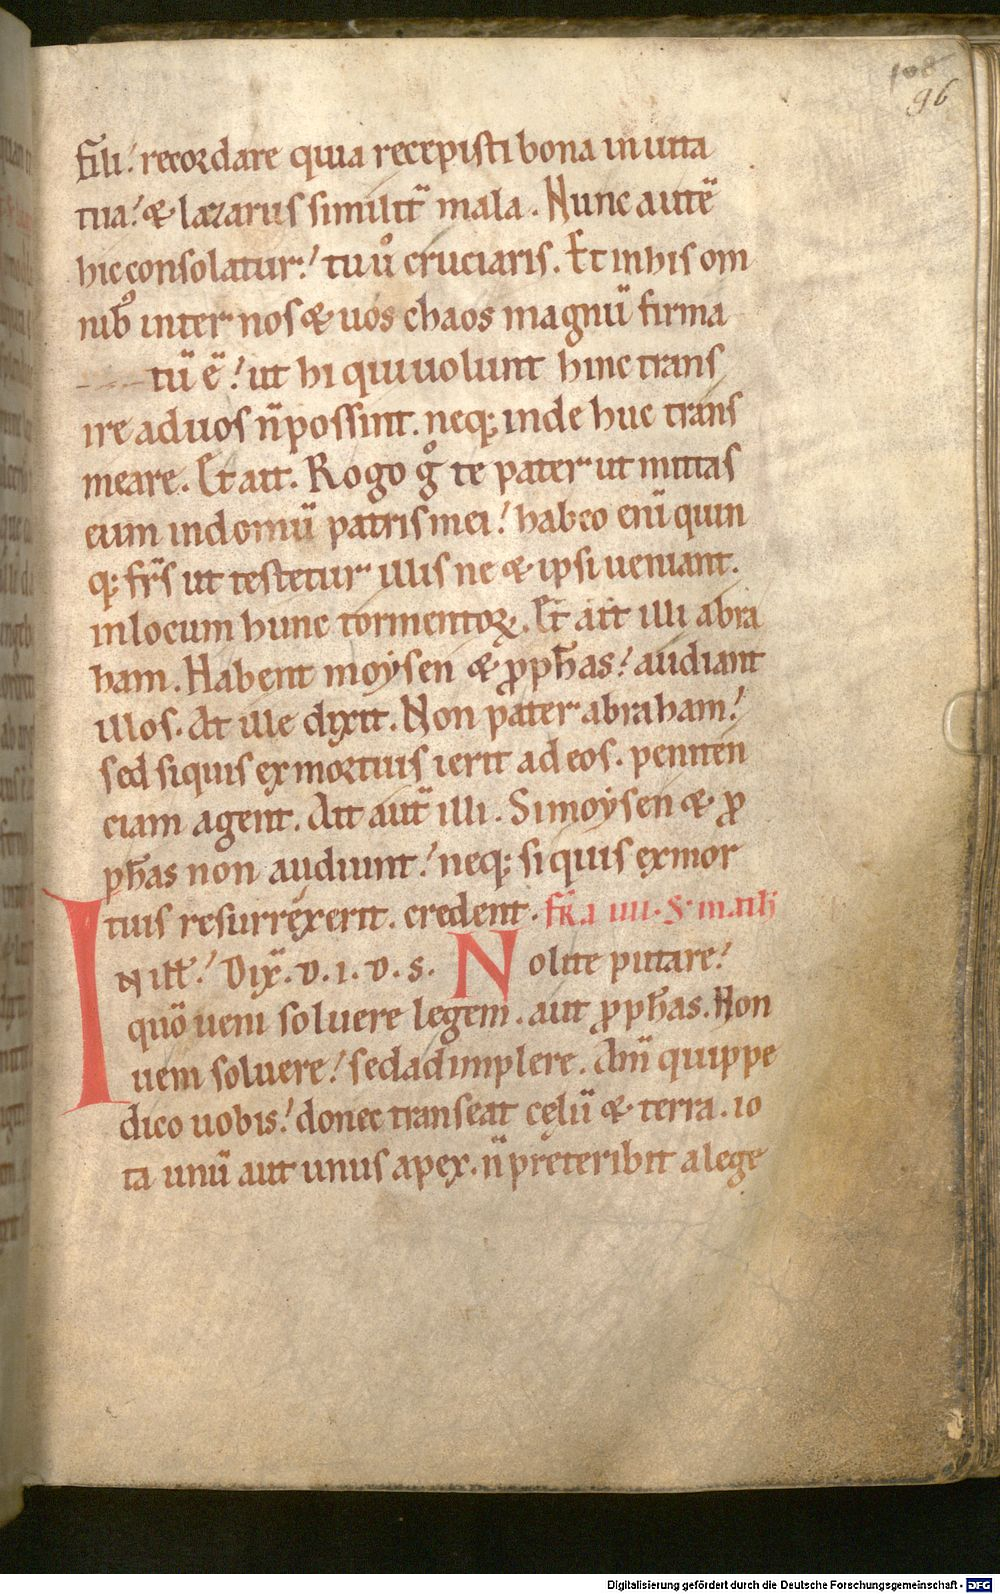 108
96
Fili! recordare quia recepisti bona in uita
tua! & lazarus similit̄ mala. Nunc autē
hic consolatur! tu ů cruciaris. Et in his om
nib; inter nos & uos chaos magnū firma
tū ē! ut hi qui uolunt hinc trans
ire ad uos n̄ possint. neq; inde huc trans
meare. Et ait. Rogo g̊ te pater ut mittas
eum in domū patris mei! habeo enī quin
q; fr̄s ut testetur illis ne & ipsi ueniant.
in locum hunc tormentoꝝ. Et ait illi abra
ham. Habent moysen & ꝓph̄as! audiant
illos. At ille dixit. Non pater abraham!
sed siquis ex mortuis ierit ad eos. peniten
ciam agent. Ait aut̄ illi. Si moysen & ꝓ
ph̄as non audiunt! neq; siquis ex mor
tuis resurrexerit. credent. fr̄a iiii. S. math̄
IN ill̄! Dix̄. D. I. D. S. Nolite putare!
quō ueni soluere legem. aut ꝓph̄as. Non
ueni soluere! sed adimplere. Am̄ quippe
dico uobis! donec transeat cęlū & terra. io
ta unū aut unus apex. n̄ pręteribit a lege
Digitalisierung gefördert durch die Deutsche Forschungsgemeinschaft - DFG